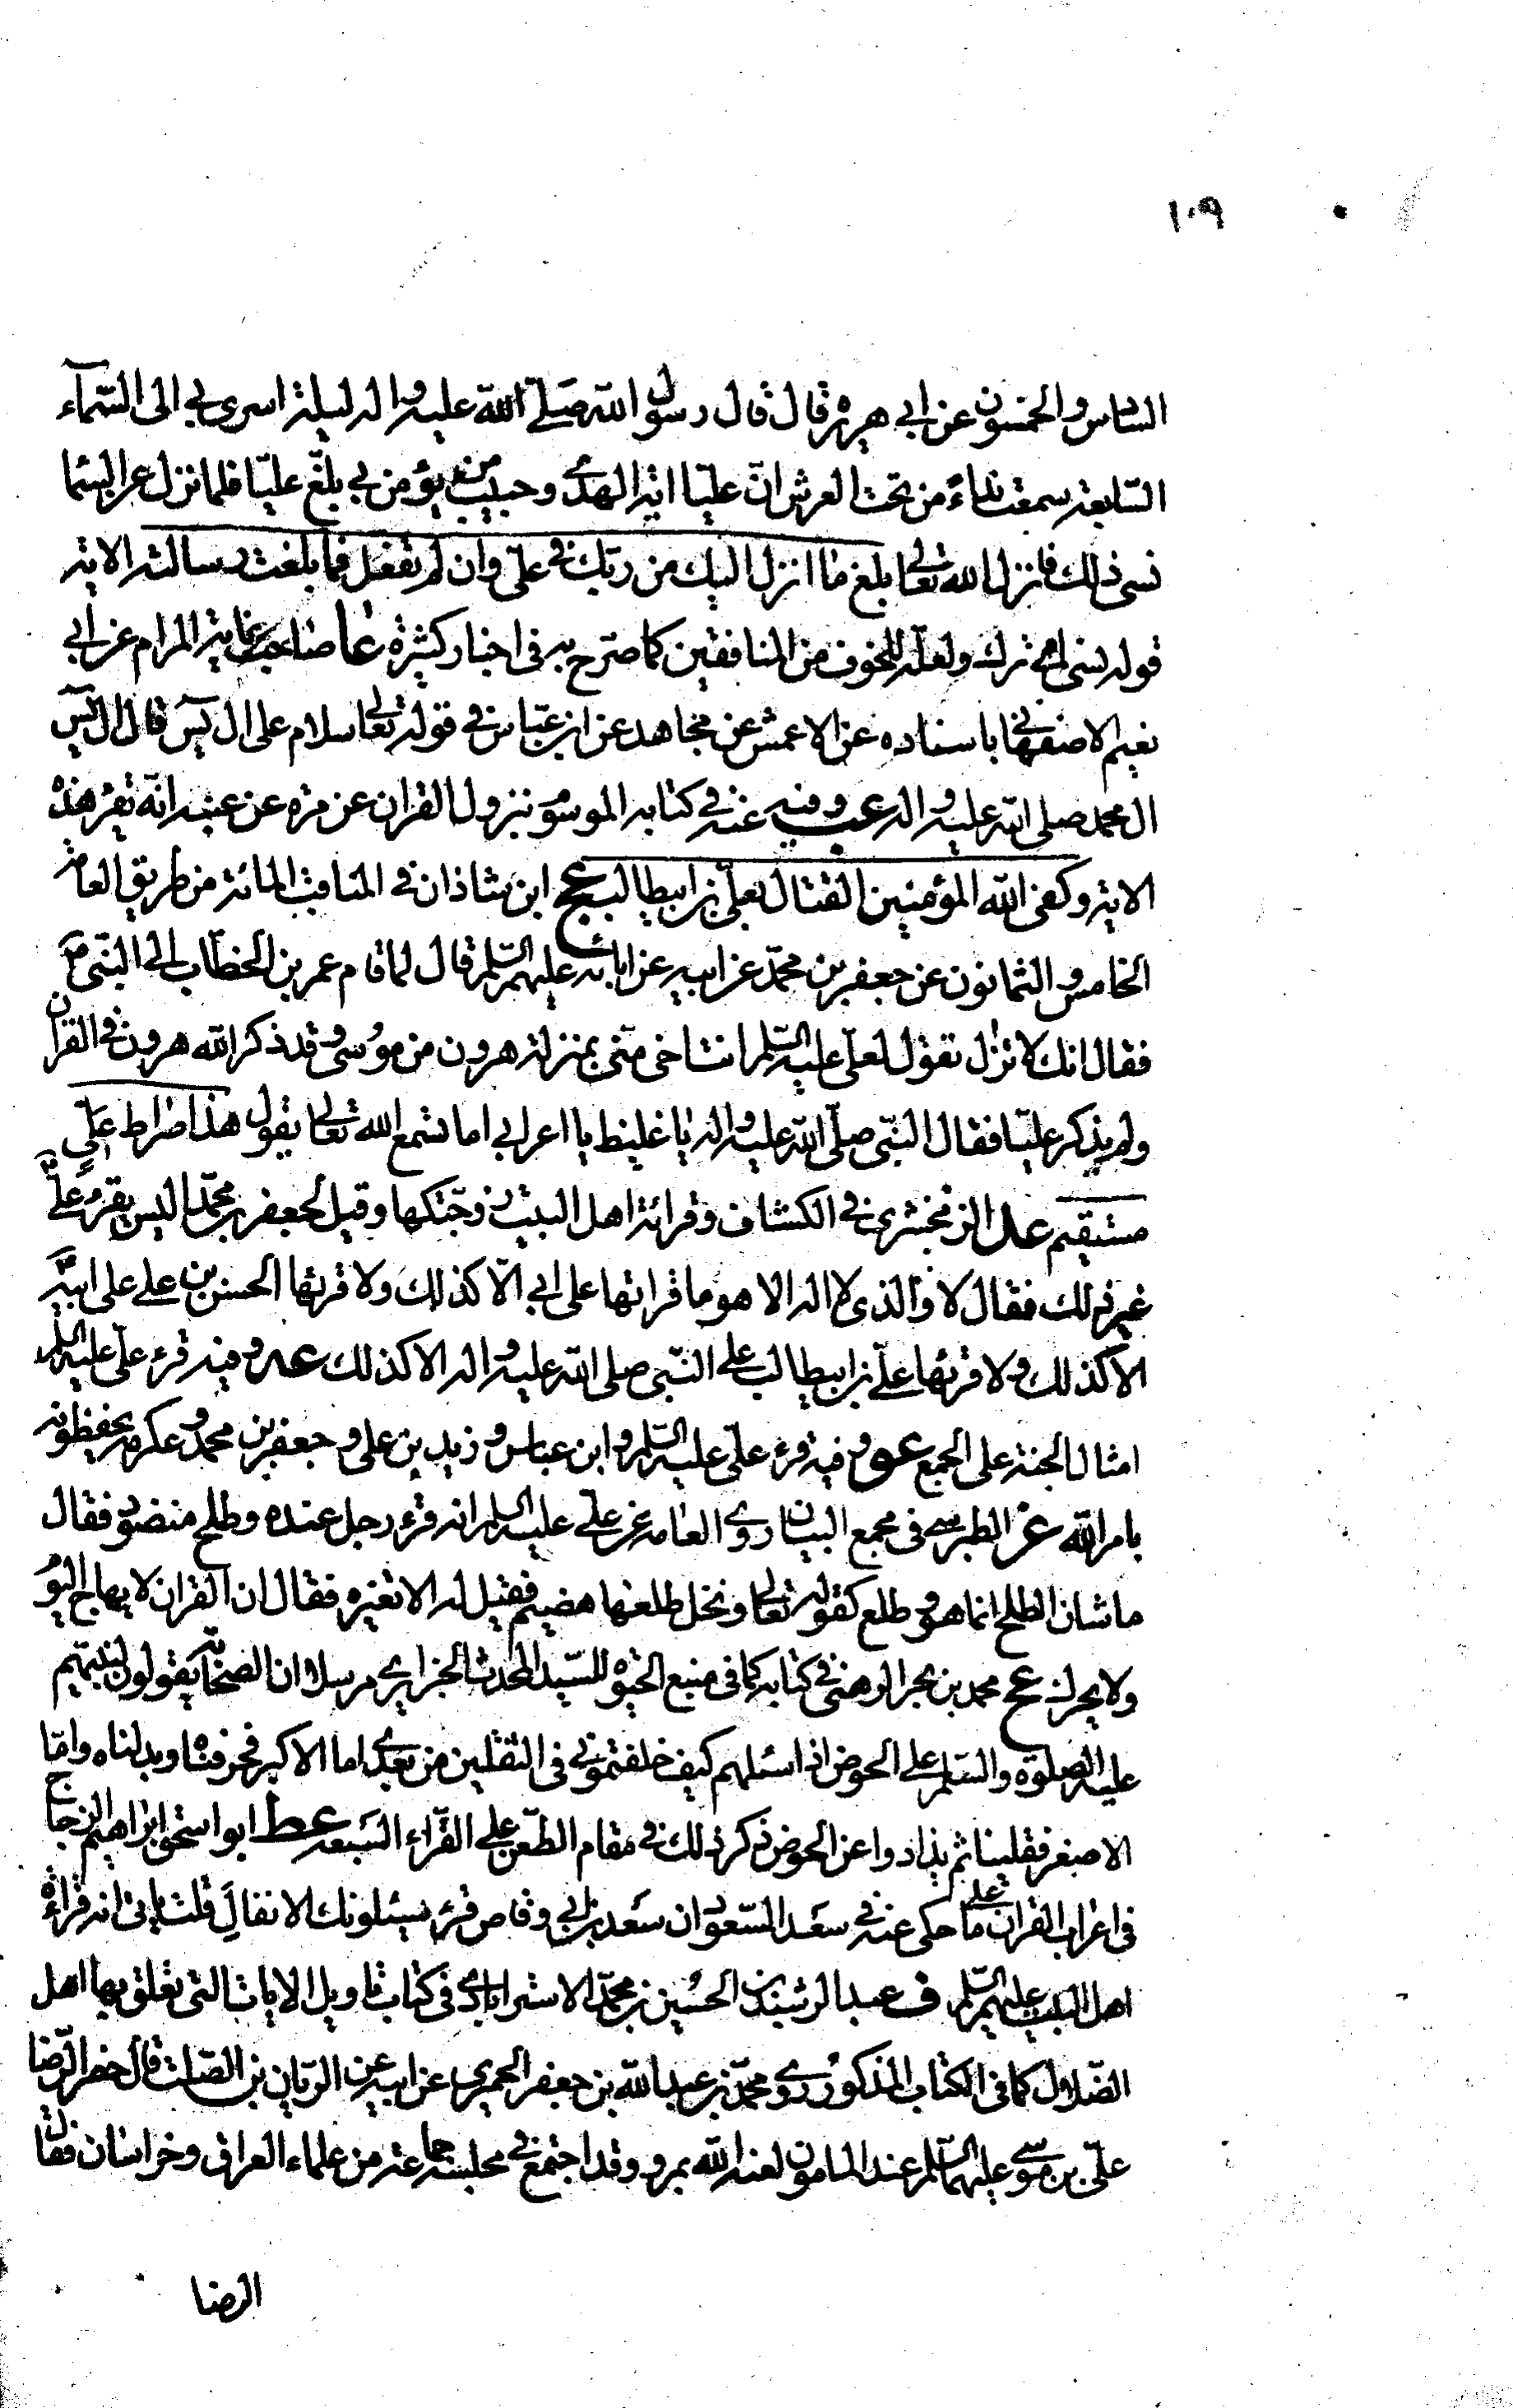 ١٠٩
السادس والخمسون عن ابي هريرة قال قال رسول الله صلى الله عليه واله ليلة اسرى بي الى السماء
السابعة سمعت نداء من تحت العرش ان عليا اية الهدى وحبيب من يؤمن بي بلغ عليا فلما نزل عن السما
نسى ذلك فانزل الله تعالى بلغ ما انزل اليك من ربك في على وان لم تفعل فما بلغت رسالته الاية
قوله نسى اى ترك ولعله للخوف من المنافقين كما صرح به في اخبار كثيرة عا صاحب غاية المرام عن ابي
نعيم الاصفهاني باسناده عن الاعمش عن مجاهد عن ابن عباس في قوله تعالى سلام على ال يس قال ال يس
ال محمد صلى الله عليه واله عب وفيه عنه في كتابه الموسوم بنزول القران عن مرة عن عبد الله انه يقرء هذه
الاية وكفى الله المؤمنين القتال بعلي بن ابيطالب عج ابن شاذان في المناقب المائة من طريق العامة
الخامس والثمانون عن جعفر بن محمد عن ابيه عن ابائه عليهم السلم قال لما قام عمر بن الخطاب الى النبي ص
فقال انك لا تزل تقول لعلي عليه السلم انت اخي مني بمنزلة هرون من موسى وقد ذكر الله هرون في القران
ولم يذكر عليا فقال النبي صلى الله عليه واله يا غليظ يا اعرابي اما تسمع الله تعالى يقول هذا صراط علي
مستقيم عد الزمخشري في الكشاف وقرائة اهل البيت زوجتكها وقيل لجعفر بن محمد اليس يقرء علي
غير ذلك فقال لا والذي لا اله الا هو ما قراتها على ابي الا كذلك ولا قرئها الحسن بن علي على ابيه
الا كذلك ولا قرئها علي بن ابيطالب على النبي صلى الله عليه واله الا كذلك عه وفيه قرء علي عليه السلم
امثال الجنة على الجمع عو وفيه قرء علي عليه السلم وابن عباس وزيد بن علي وجعفر بن محمد وعكرمة يحفظونه
بامر الله عز الطبرسي في مجمع البيان روى العامة عن علي عليه السلم انه قرء رجل عنده وطلح منضود فقال
ما شان الطلح انما هو وطلع كقوله تعالى ونخل طلعها هضيم فقيل له الا تغيره فقال ان القران لا يهاج اليوم
ولا يحرك عح محمد بن بحر الرهني في كتابه كما في منبع الحيوة للسيد المحدث الجزايري مرسلا ان الصحابة يقولون لنبيهم
عليه الصلوة والسلم على الحوض اذا سئلهم كيف خلفتموني في الثقلين من بعدي اما الاكبر فحرفناه وبدلناه واما
الاصغر فقتلناه ثم يذادوا عن الحوض ذكر ذلك في مقام الطعن على القراء السبعة عط ابو اسحق ابراهيم الزجاج
في اعراب القران على ما حكى عنه في سعد السعود ان سعد بن ابي وقاص قرء يسئلونك الانفال قلت ياتي انه قرائة
اهل البيت عليهم السلم ف عبد الرشيد بن الحسين بن محمد الاسترابادي في كتاب تاويل الايات التي تعلق بها اهل
الضلال كما في الكتاب المذكور روى محمد بن عبد الله بن جعفر الحميري عن ابيه عن الريان بن الصلت قال حضر الرضا
علي بن موسى عليهما السلم عند المامون لعنه الله بمرو وقد اجتمع في مجلسه جماعة من علماء العراق وخراسان فقال
الرضا